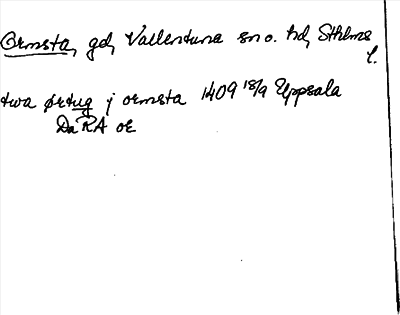 Ormsta, gd, Vallentuna sn o. hd, Sthlms
l.
twa ørtug j ormsta 1409 18/9 Uppsala
DaRA oE